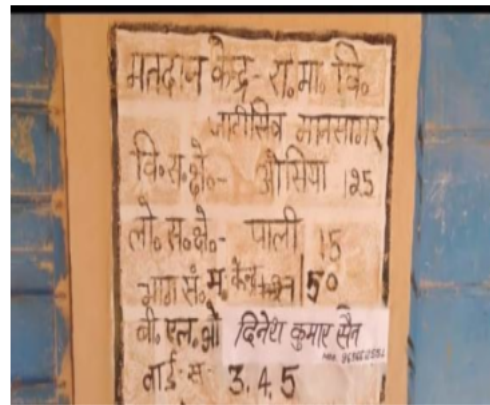 मतदान केन्द्र- रा. मा. वि.
जाटीसित्र मानसागर
वि. स. क्षे.- औसिया 125
लो. स. क्षे.- पाली 15
भाग सं. म. 150
बी. एल. ओ दिनेश कुमार सैन
वार्ड-स- 3.4.5